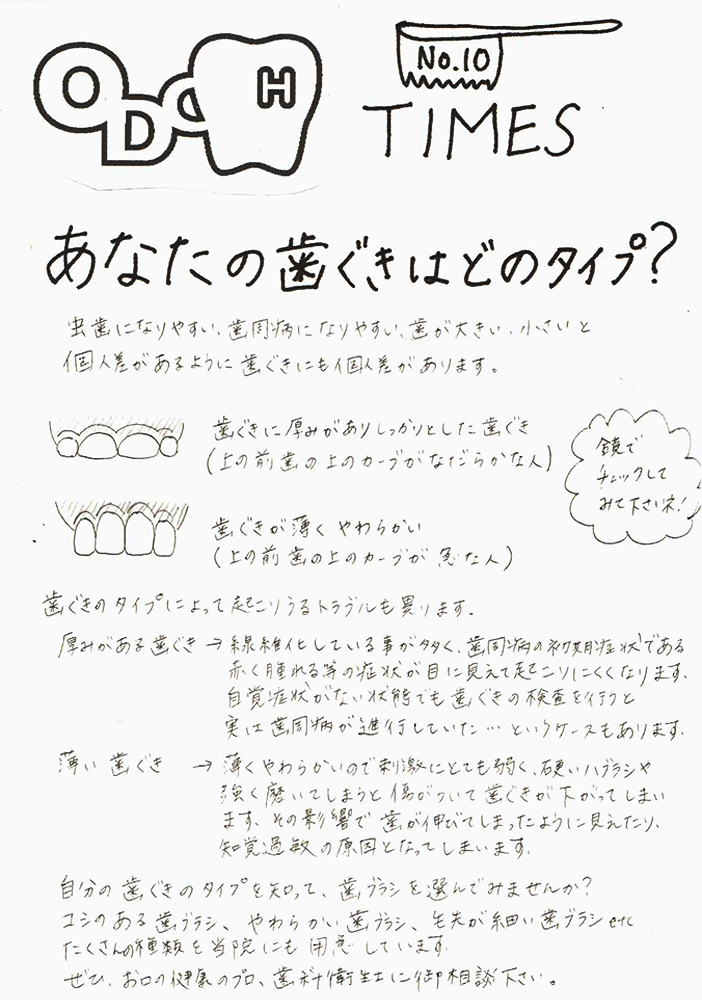 ODCH
No.10
TIMES
あなたの歯ぐきはどのタイプ?
虫歯になりやすい、歯周病になりやすい、歯が大きい、小さいと
個人差があるように歯ぐきにも個人差があります。
歯ぐきに厚みがありしっかりとした歯ぐき
(上の前歯の上のカーブがなだらかな人)
鏡で
チェックして
みて下さいネ!
歯ぐきが薄くやわらかい
(上の前歯の上のカーブが急な人)
歯ぐきのタイプによって起こりうるトラブルも異ります.
厚みがある歯ぐき→線維化している事が多く、歯周病の初期症状である
赤く腫れる等の症状が目に見えて起こりにくくなります.
自覚症状がない状態でも歯ぐきの検査を行うと
実は歯周病が進行していた…というケースもあります.
薄い歯ぐき→薄くやわらかいので刺激にとても弱く、硬いハブラシや
強く磨いてしまうと傷がついて歯ぐきが下がってしまい
ます、その影響で歯が伸びてしまったように見えたり、
知覚過敏の原因となってしまいます.
自分の歯ぐきのタイプを知って、歯ブラシを選んでみませんか?
コシのある歯ブラシ、やわらかい歯ブラシ、毛先が細い歯ブラシetc
たくさんの種類を当院にも用意しています.
ぜひ、お口の健康のプロ、歯科衛生士に御相談下さい。